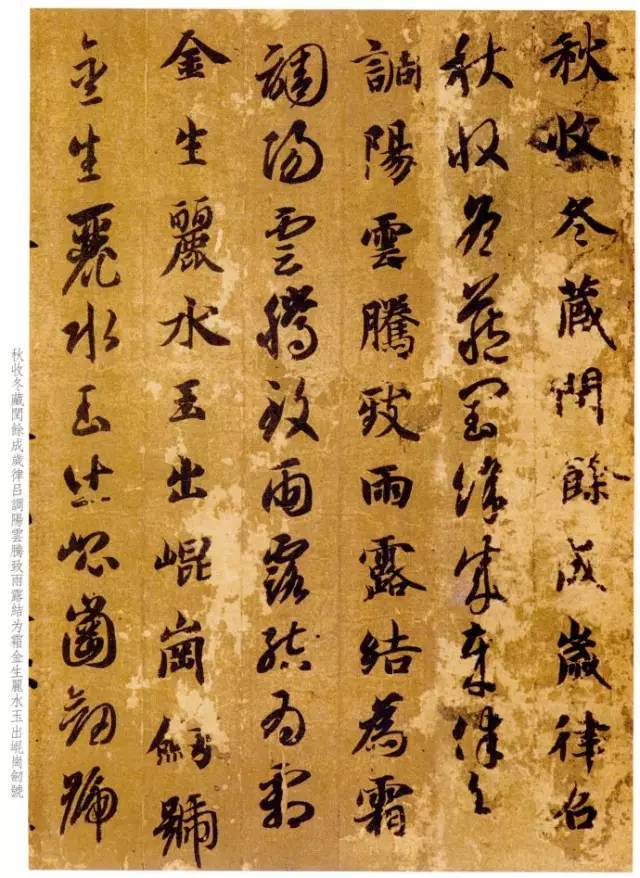 秋收冬藏閏餘成歲律呂
秋收冬藏閏餘成歲律呂
調陽雲騰致雨露結為霜
調陽雲騰致雨露結為霜
金生麗水玉出崐崗劒號
金生麗水玉出崐崗劒號
秋收冬藏閏餘成歲律呂調陽雲騰致雨露结为霜金生麗水玉出崐崗劒號